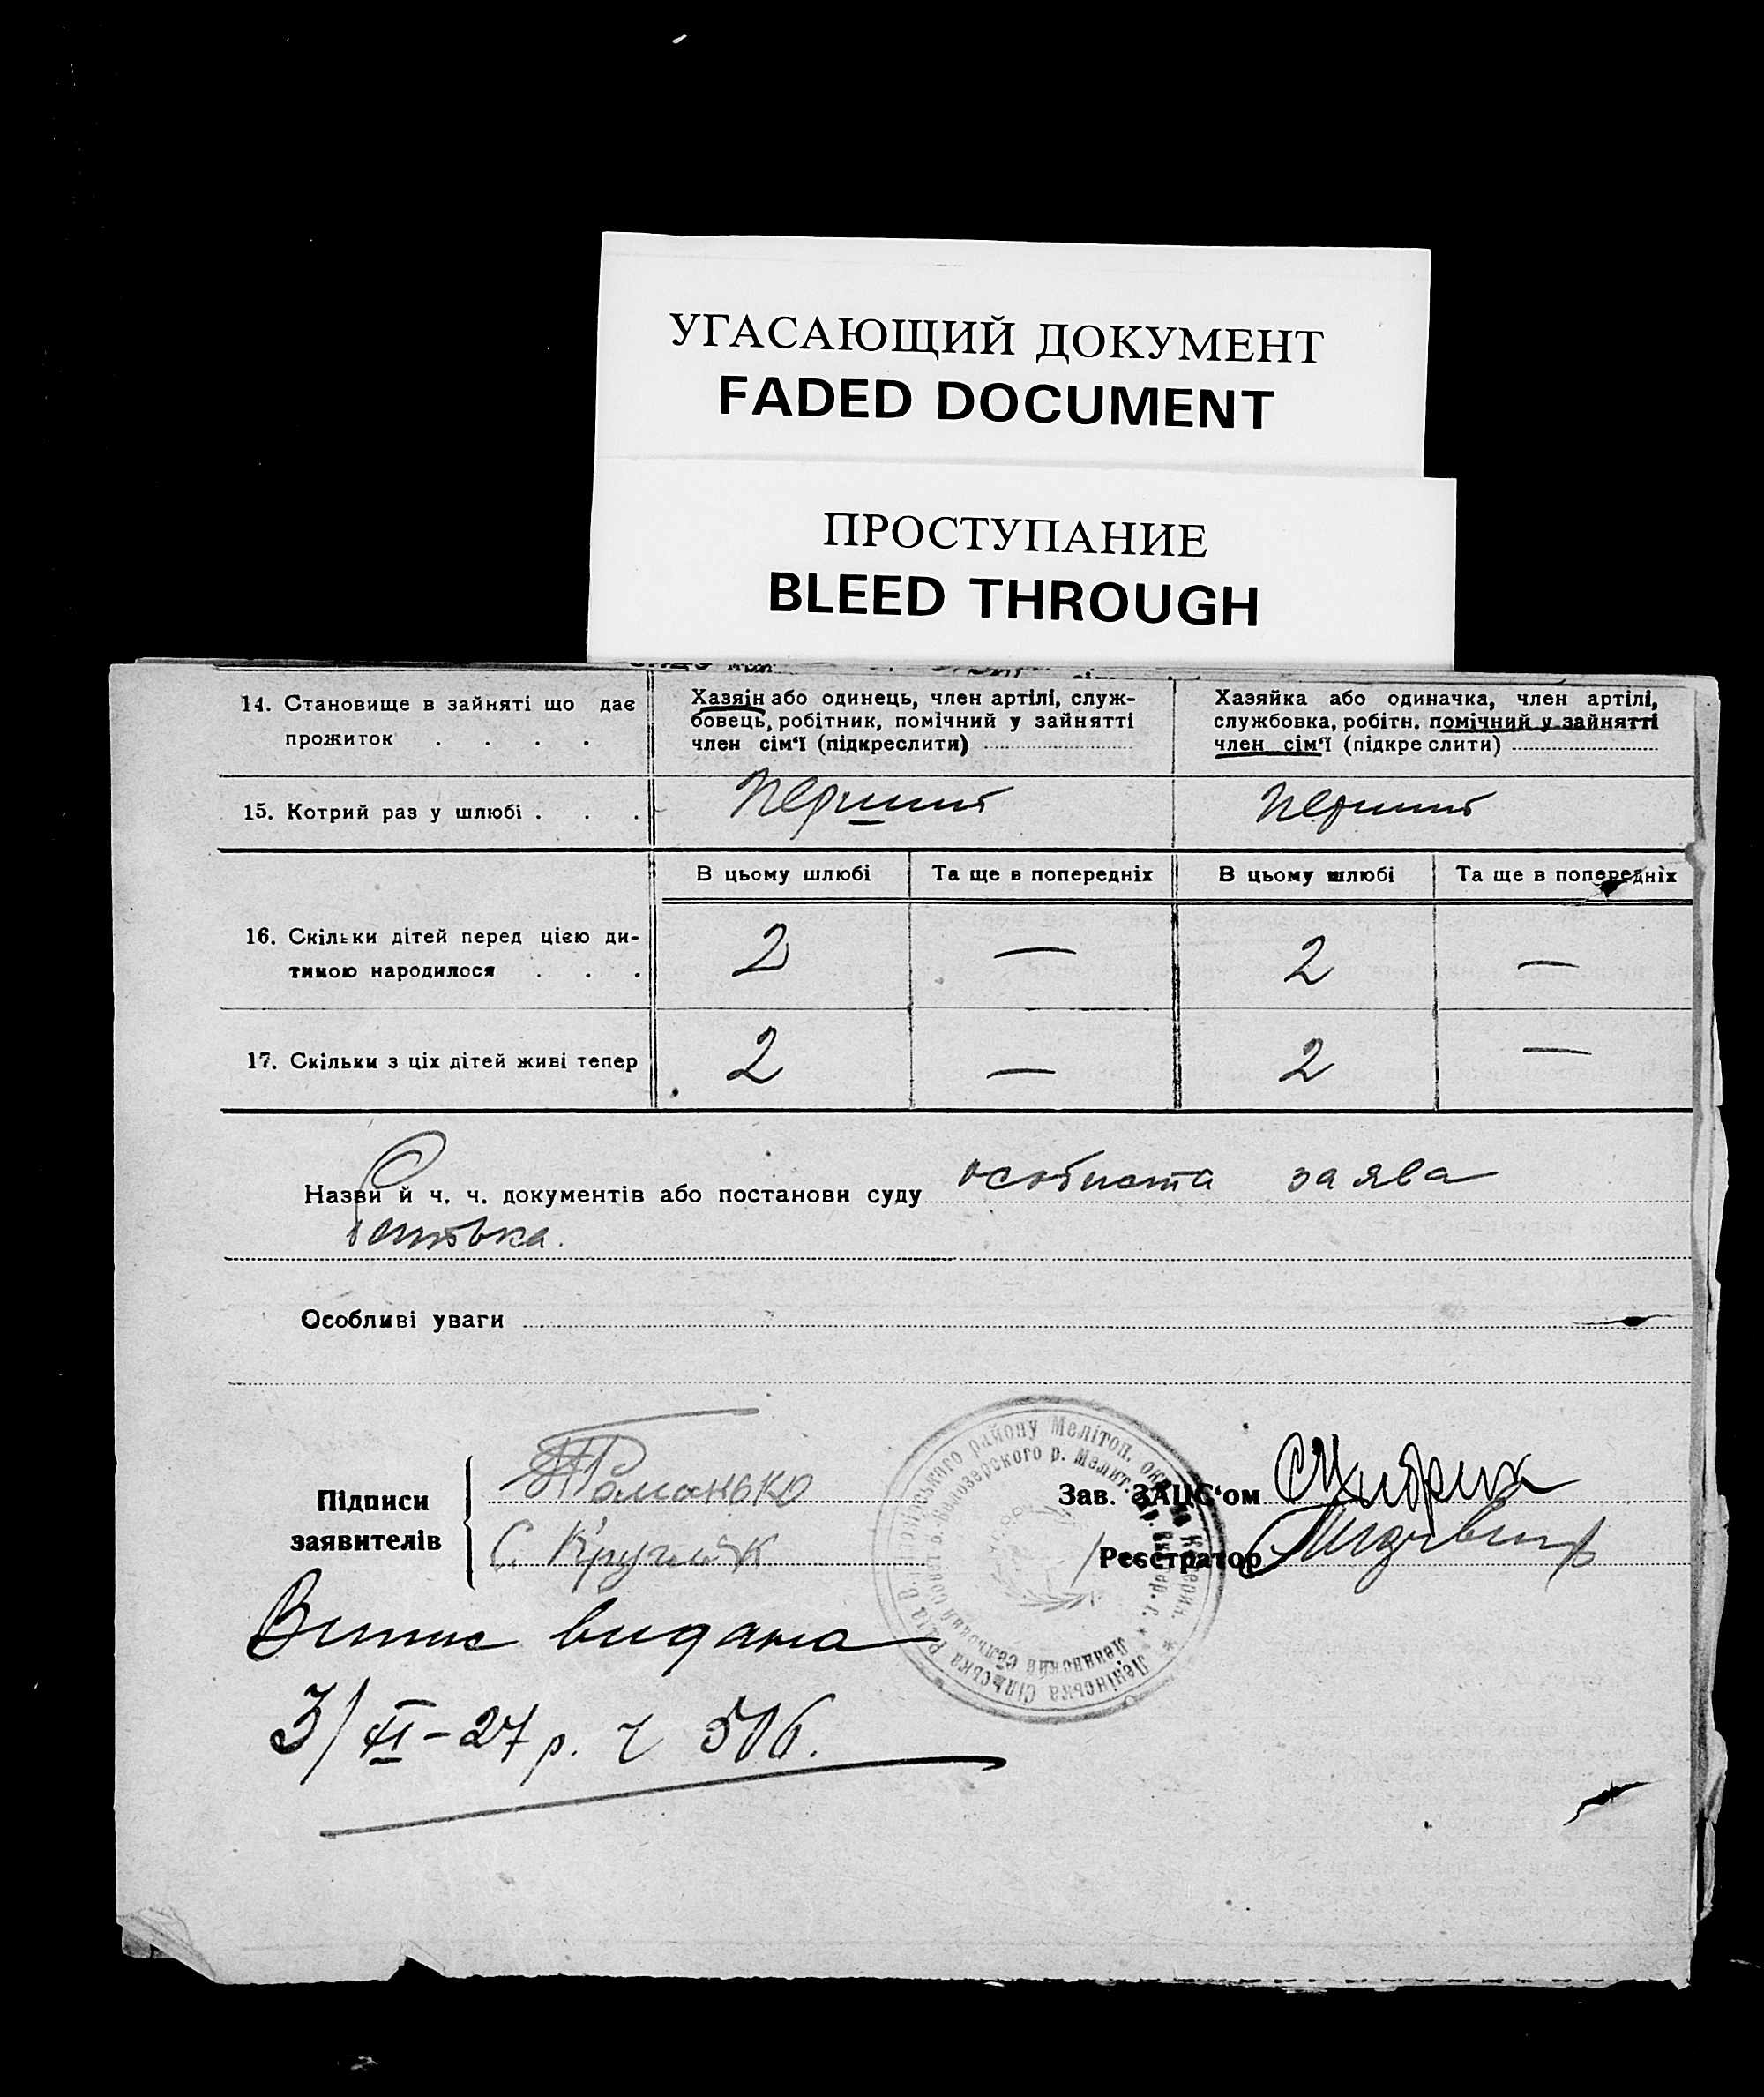 УГАСАЮЩИЙ ДОКУМЕНТ
FADED DOCUMENT
ПРОСТУПАНИЕ
BLEED THROUGH
14. Становище в зайняті що дає
прожиток . . . .
Хазяїн або одинець, член артілі, служ-
бовець, робітник, помічний у зайнятті
член сім‘ї (підкреслити)
Хазяйка або одиначка, член артілі,
службовка, робітн. помічний у зайнятті
член сім‘ї (підкре слити)
15. Котрий раз у шлюбі . . .
перший
перший
В цьому шлюбі
Та ще в попередніх
В цьому шлюбі
Та ще в попередніх
16. Скільки дітей перед цією ди-
тиною народилося . . .
2 — 2 —
17. Скільки з ціх дітей живі тепер
2 — 2 —
Назви й ч. ч. документів або постанови суду особиста заява
Особливі уваги
Підписи
заявителів
Романько
С. Кругляк
Зав. ЗАЦС‘ом
Реєстратор
Ленінська Сільська Рада В. Білозірського району Мелітоп. округа Катерин.
Ленинский сельский совет В. Белозерского р. Мелит. окр. Екатер. г.
Випис видана
3/XI-27 р. ч 506.